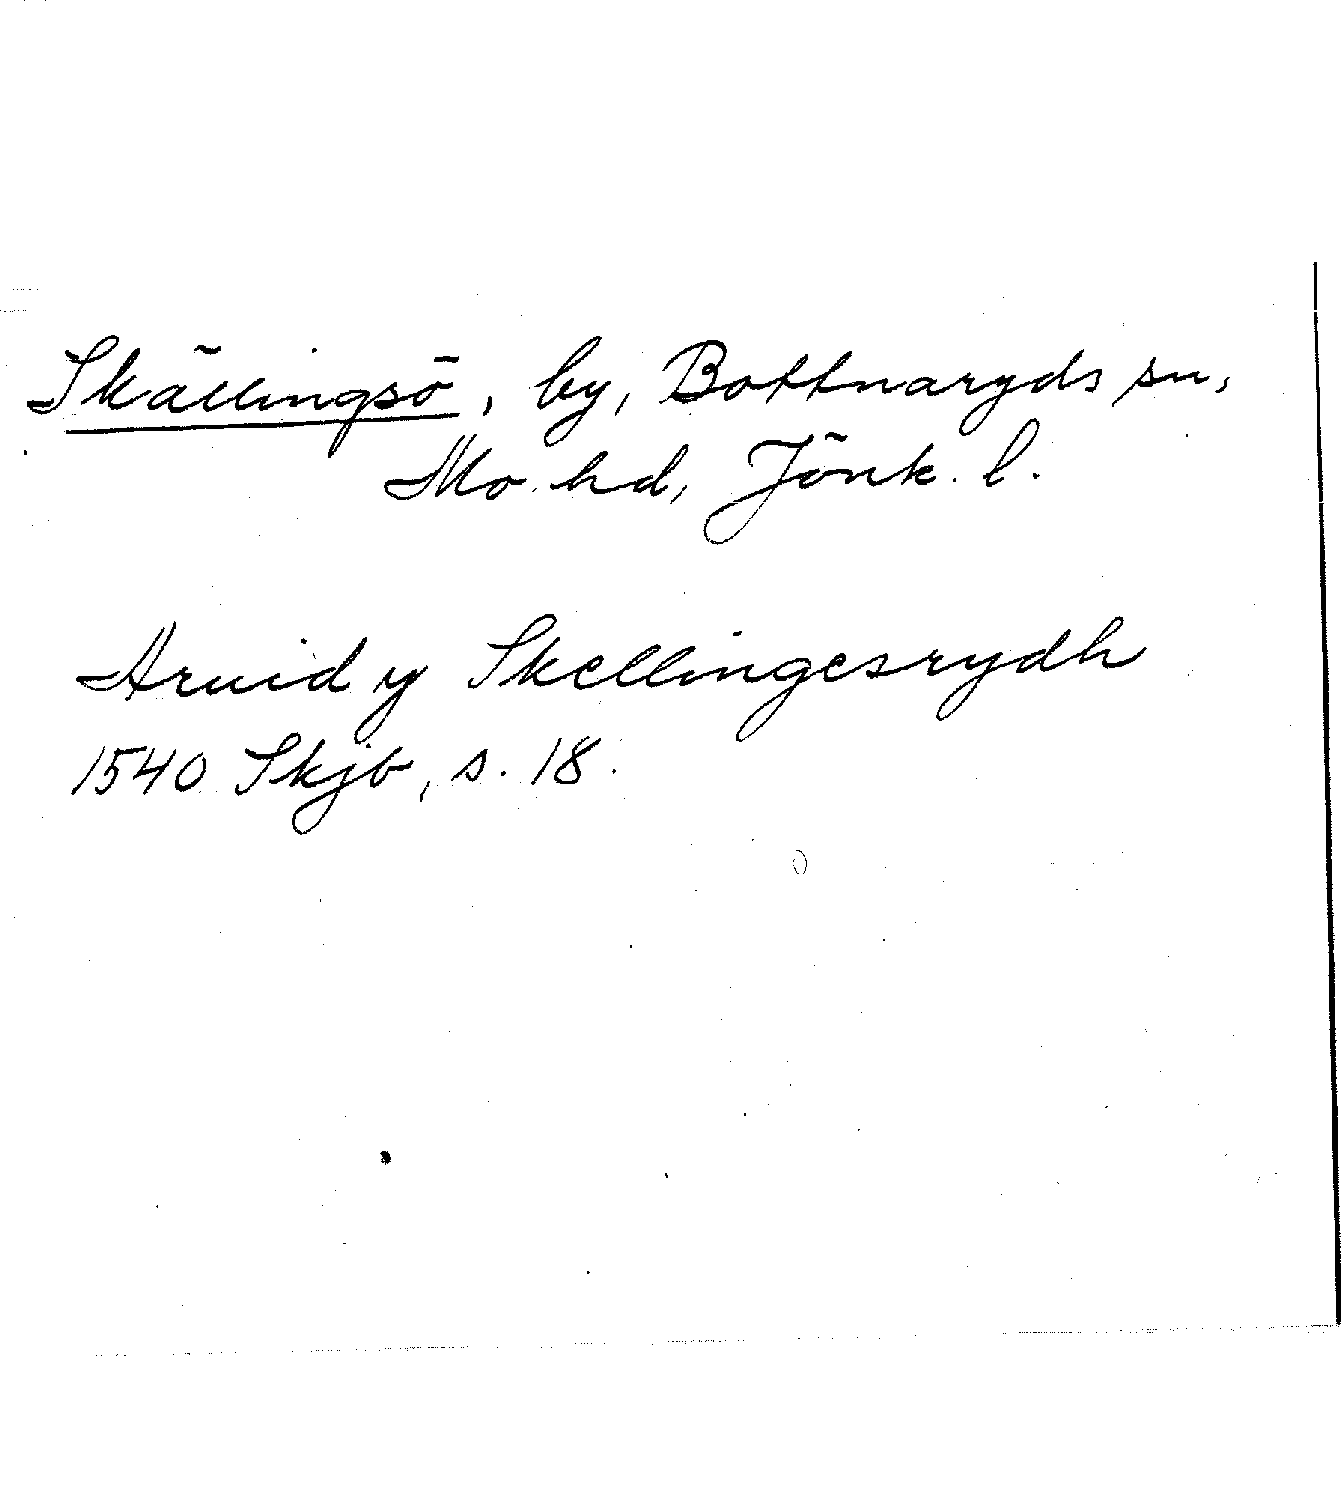 Skällingsö, by, Bottnaryds sn,
Mo hd, Jönk. l.
Arvid y Skellingesrydh
1540 Skjb, s. 18.